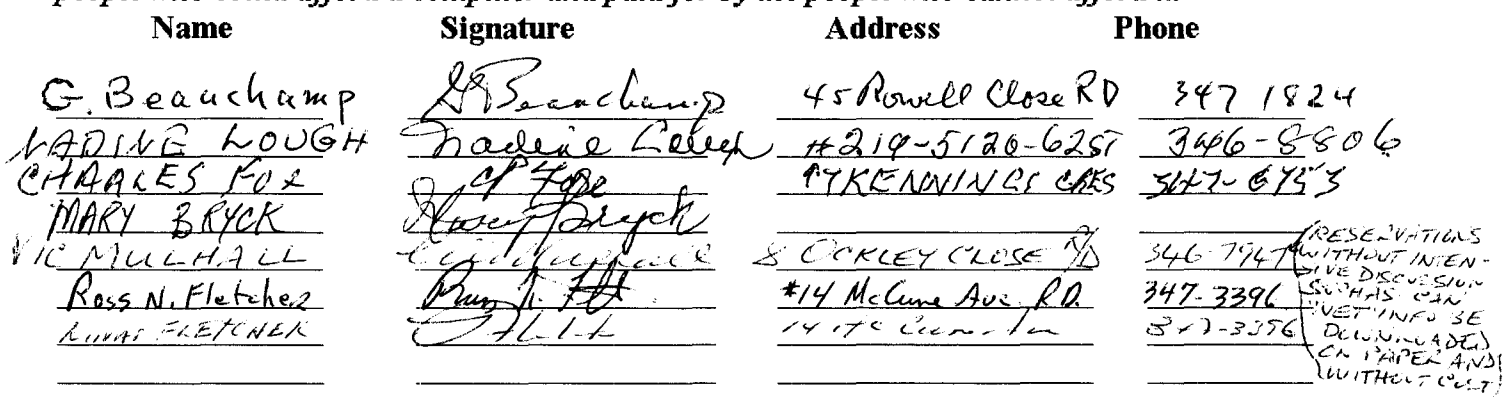 Name Signature Address Phone
G. Beauchamp G Beauchamp 45 Rowell Close RD 347 1824
NADINE LOUGH Nadine Lough #219-5120-62ST 346-8806
CHARLES FOX C Fox KENNINGS CRES 347-6753
MARY BRYCK Mary Bryck
VIC MULHALL 8 OCKLEY CLOSE RD 346-7947
Ross N. Fletcher #14 McCune Ave RD. 347-3396
FLETCHER 14 347-3396
(RESERVATIONS
WITHOUT INTEN-
SIVE DISCUSSION
SUCH AS CAN
'NET' INFO BE
DOWNLOADED
ON PAPER AND
WITHOUT COST)